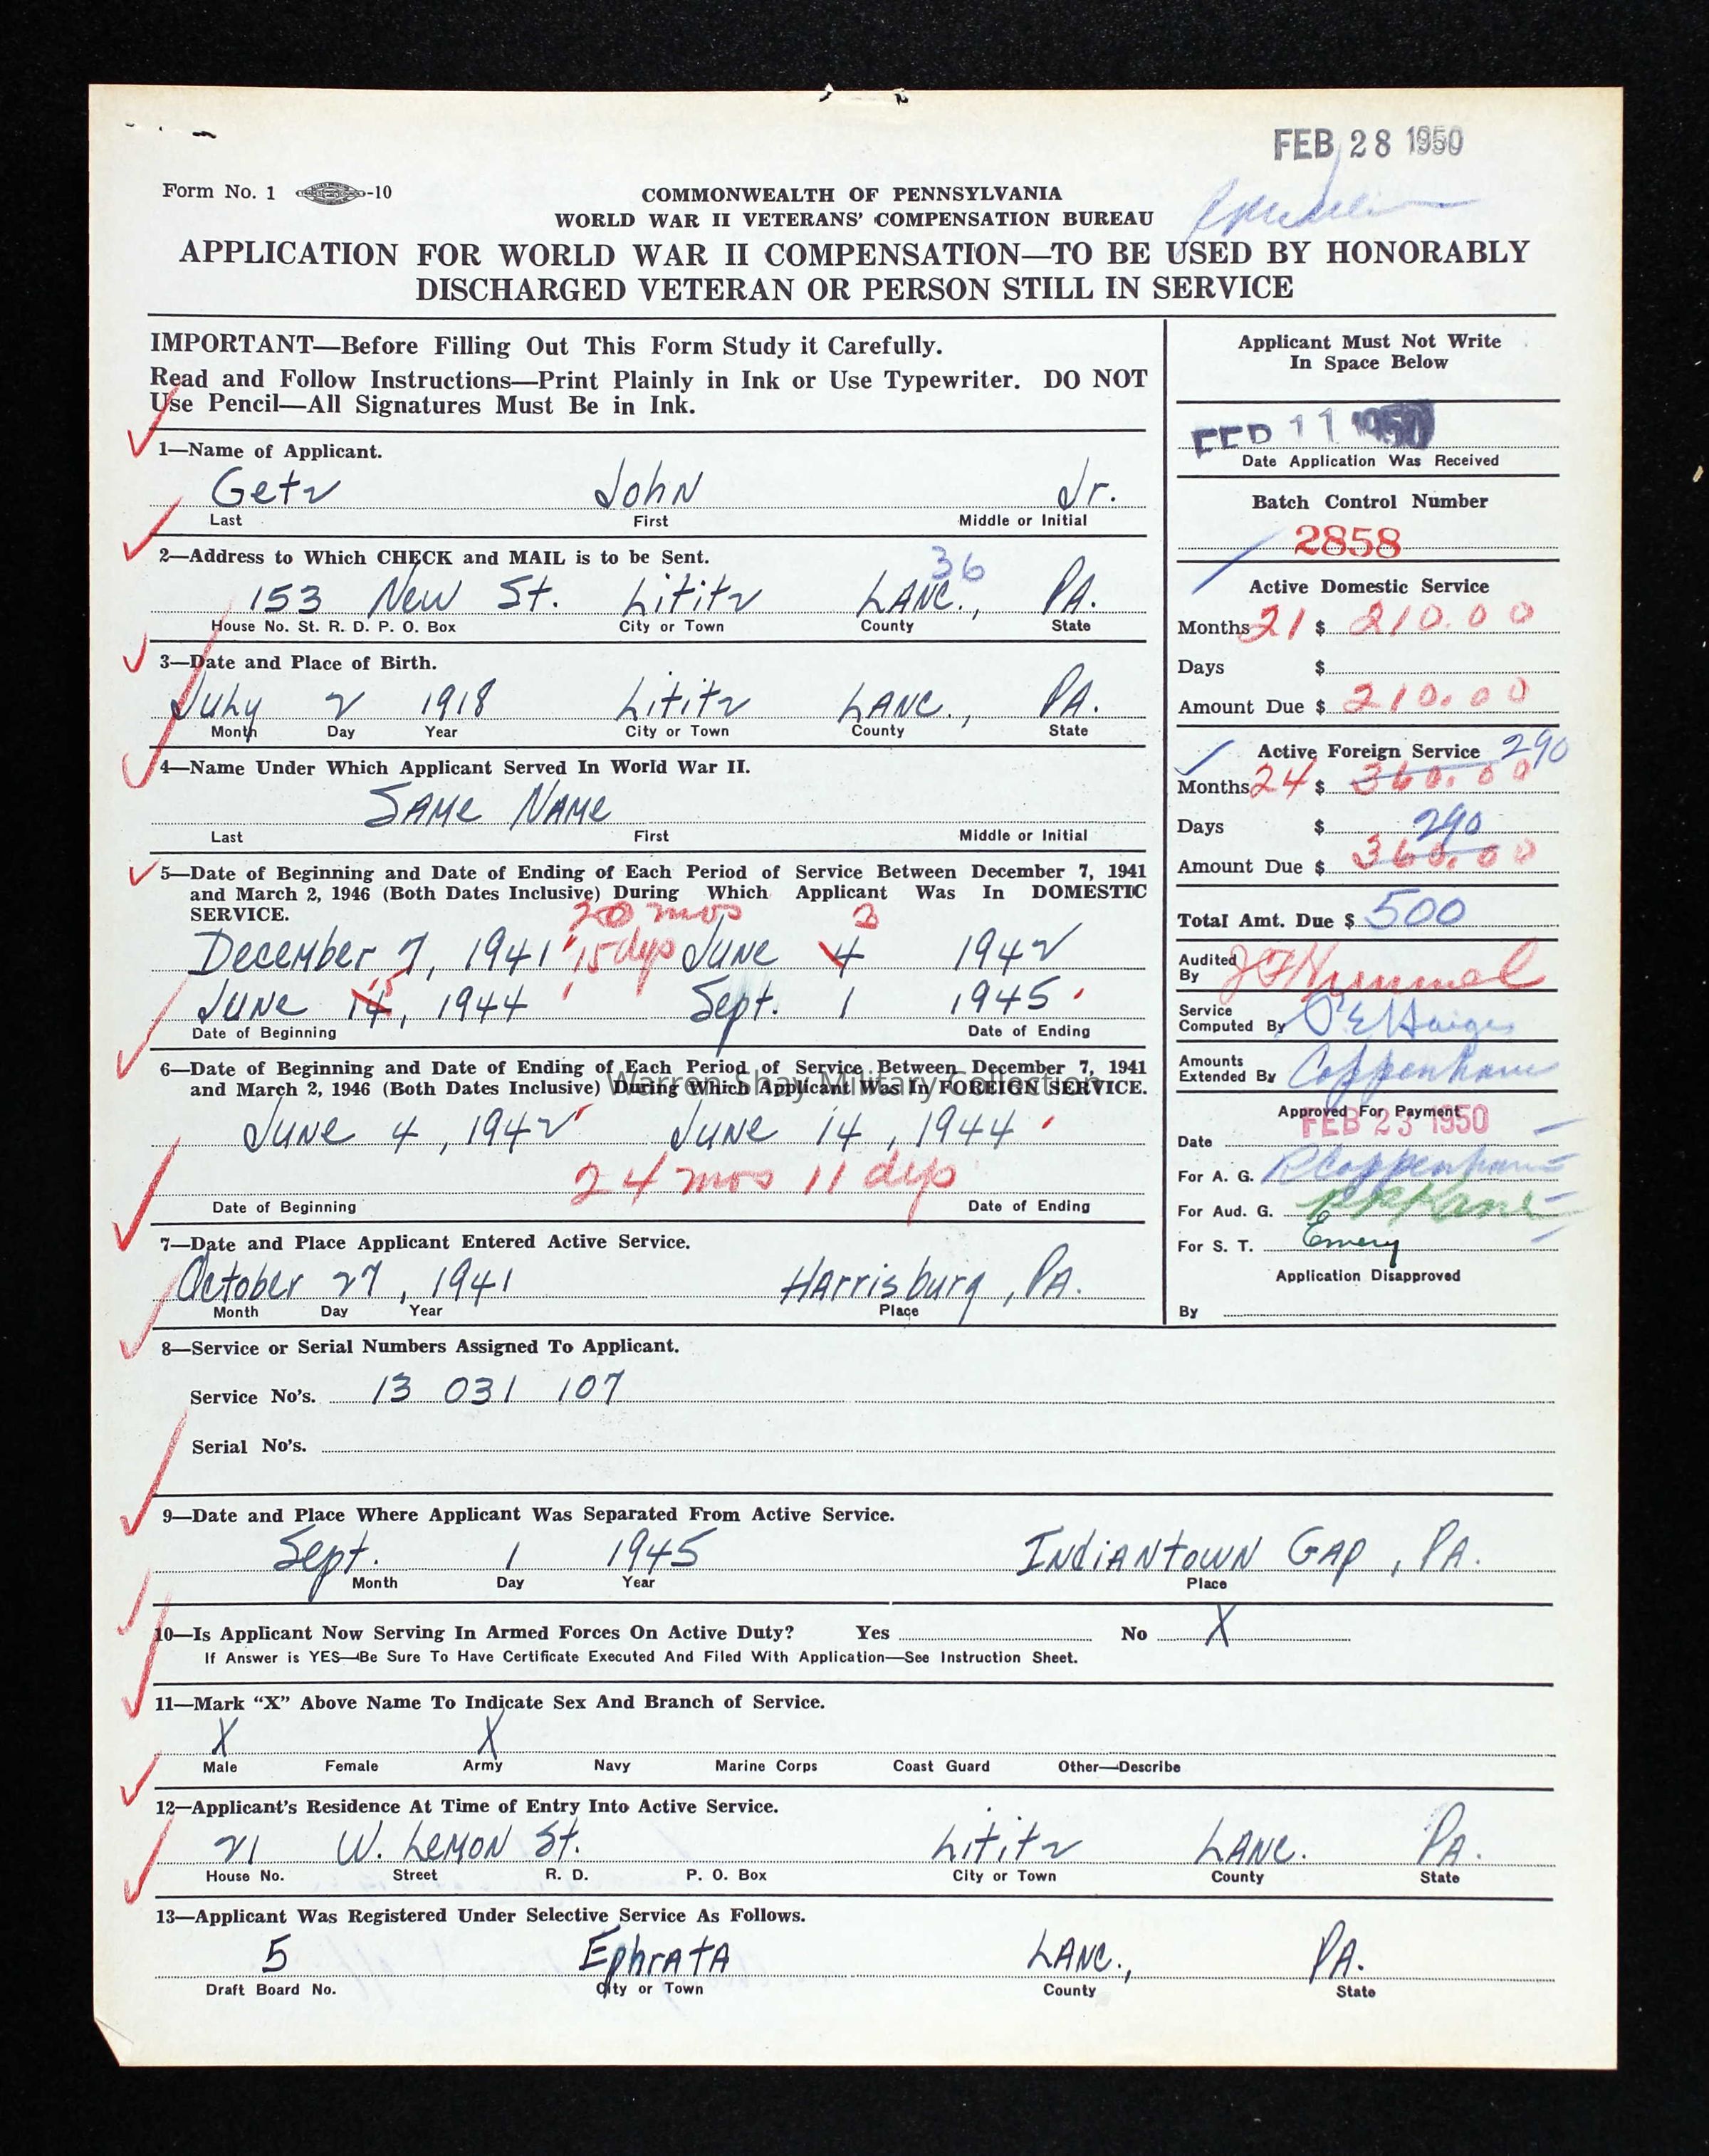 FEB 28 1950
Form No. 1 -10
COMMONWEALTH OF PENNSYLVANIA
WORLD WAR II VETERANS' COMPENSATION BUREAU
APPLICATION FOR WORLD WAR II COMPENSATION—TO BE USED BY HONORABLY
DISCHARGED VETERAN OR PERSON STILL IN SERVICE
IMPORTANT—Before Filling Out This Form Study it Carefully.
Read and Follow Instructions—Print Plainly in Ink or Use Typewriter. DO NOT
Use Pencil—All Signatures Must Be in Ink.
1—Name of Applicant.
Getz John Jr.
Last First Middle or Initial
2—Address to Which CHECK and MAIL is to be Sent.
36
153 New St. Lititz LANC., PA.
House No. St. R. D. P. O. Box City or Town County State
3—Date and Place of Birth.
July 2 1918 Lititz LANC., PA.
Month Day Year City or Town County State
4—Name Under Which Applicant Served In World War II.
SAMe NAMe
Last First Middle or Initial
5—Date of Beginning and Date of Ending of Each Period of Service Between December 7, 1941
and March 2, 1946 (Both Dates Inclusive) During Which Applicant Was In DOMESTIC
SERVICE.
20 mos 3
December 7, 1941 15 dys June 4 1942
15
June 14, 1944 Sept. 1 1945
Date of Beginning Date of Ending
6—Date of Beginning and Date of Ending of Each Period of Service Between December 7, 1941
and March 2, 1946 (Both Dates Inclusive) During Which Applicant Was In FOREIGN SERVICE.
Warren Shay Military Collection
June 4, 1942 June 14, 1944
24 mos 11 dys
Date of Beginning Date of Ending
7—Date and Place Applicant Entered Active Service.
October 27, 1941 Harrisburg, PA.
Month Day Year Place
Applicant Must Not Write
In Space Below
FEB 11 1950
Date Application Was Received
Batch Control Number
2858
Active Domestic Service
Months 21 $ 210.00
Days $
Amount Due $ 210.00
Active Foreign Service 290
Months 24 $ 360.00
Days $ 290
Amount Due $ 360.00
Total Amt. Due $ 500
Audited
By JF Hummel
Service
Computed By
Amounts
Extended By Coppenhaver
Approved For Payment
Date FEB 23 1950
For A. G.
For Aud. G.
For S. T. Emery
Application Disapproved
By
8—Service or Serial Numbers Assigned To Applicant.
Service No's. 13 031 107
Serial No's.
9—Date and Place Where Applicant Was Separated From Active Service.
Sept. 1 1945 Indiantown Gap, PA.
Month Day Year Place
10—Is Applicant Now Serving In Armed Forces On Active Duty? Yes No X
If Answer is YES—Be Sure To Have Certificate Executed And Filed With Application—See Instruction Sheet.
11—Mark "X" Above Name To Indicate Sex And Branch of Service.
X X
Male Female Army Navy Marine Corps Coast Guard Other—Describe
12—Applicant's Residence At Time of Entry Into Active Service.
21 W. Lemon St. Lititz LANC. PA.
House No. Street R. D. P. O. Box City or Town County State
13—Applicant Was Registered Under Selective Service As Follows.
5 Ephrata LANC., PA.
Draft Board No. City or Town County State